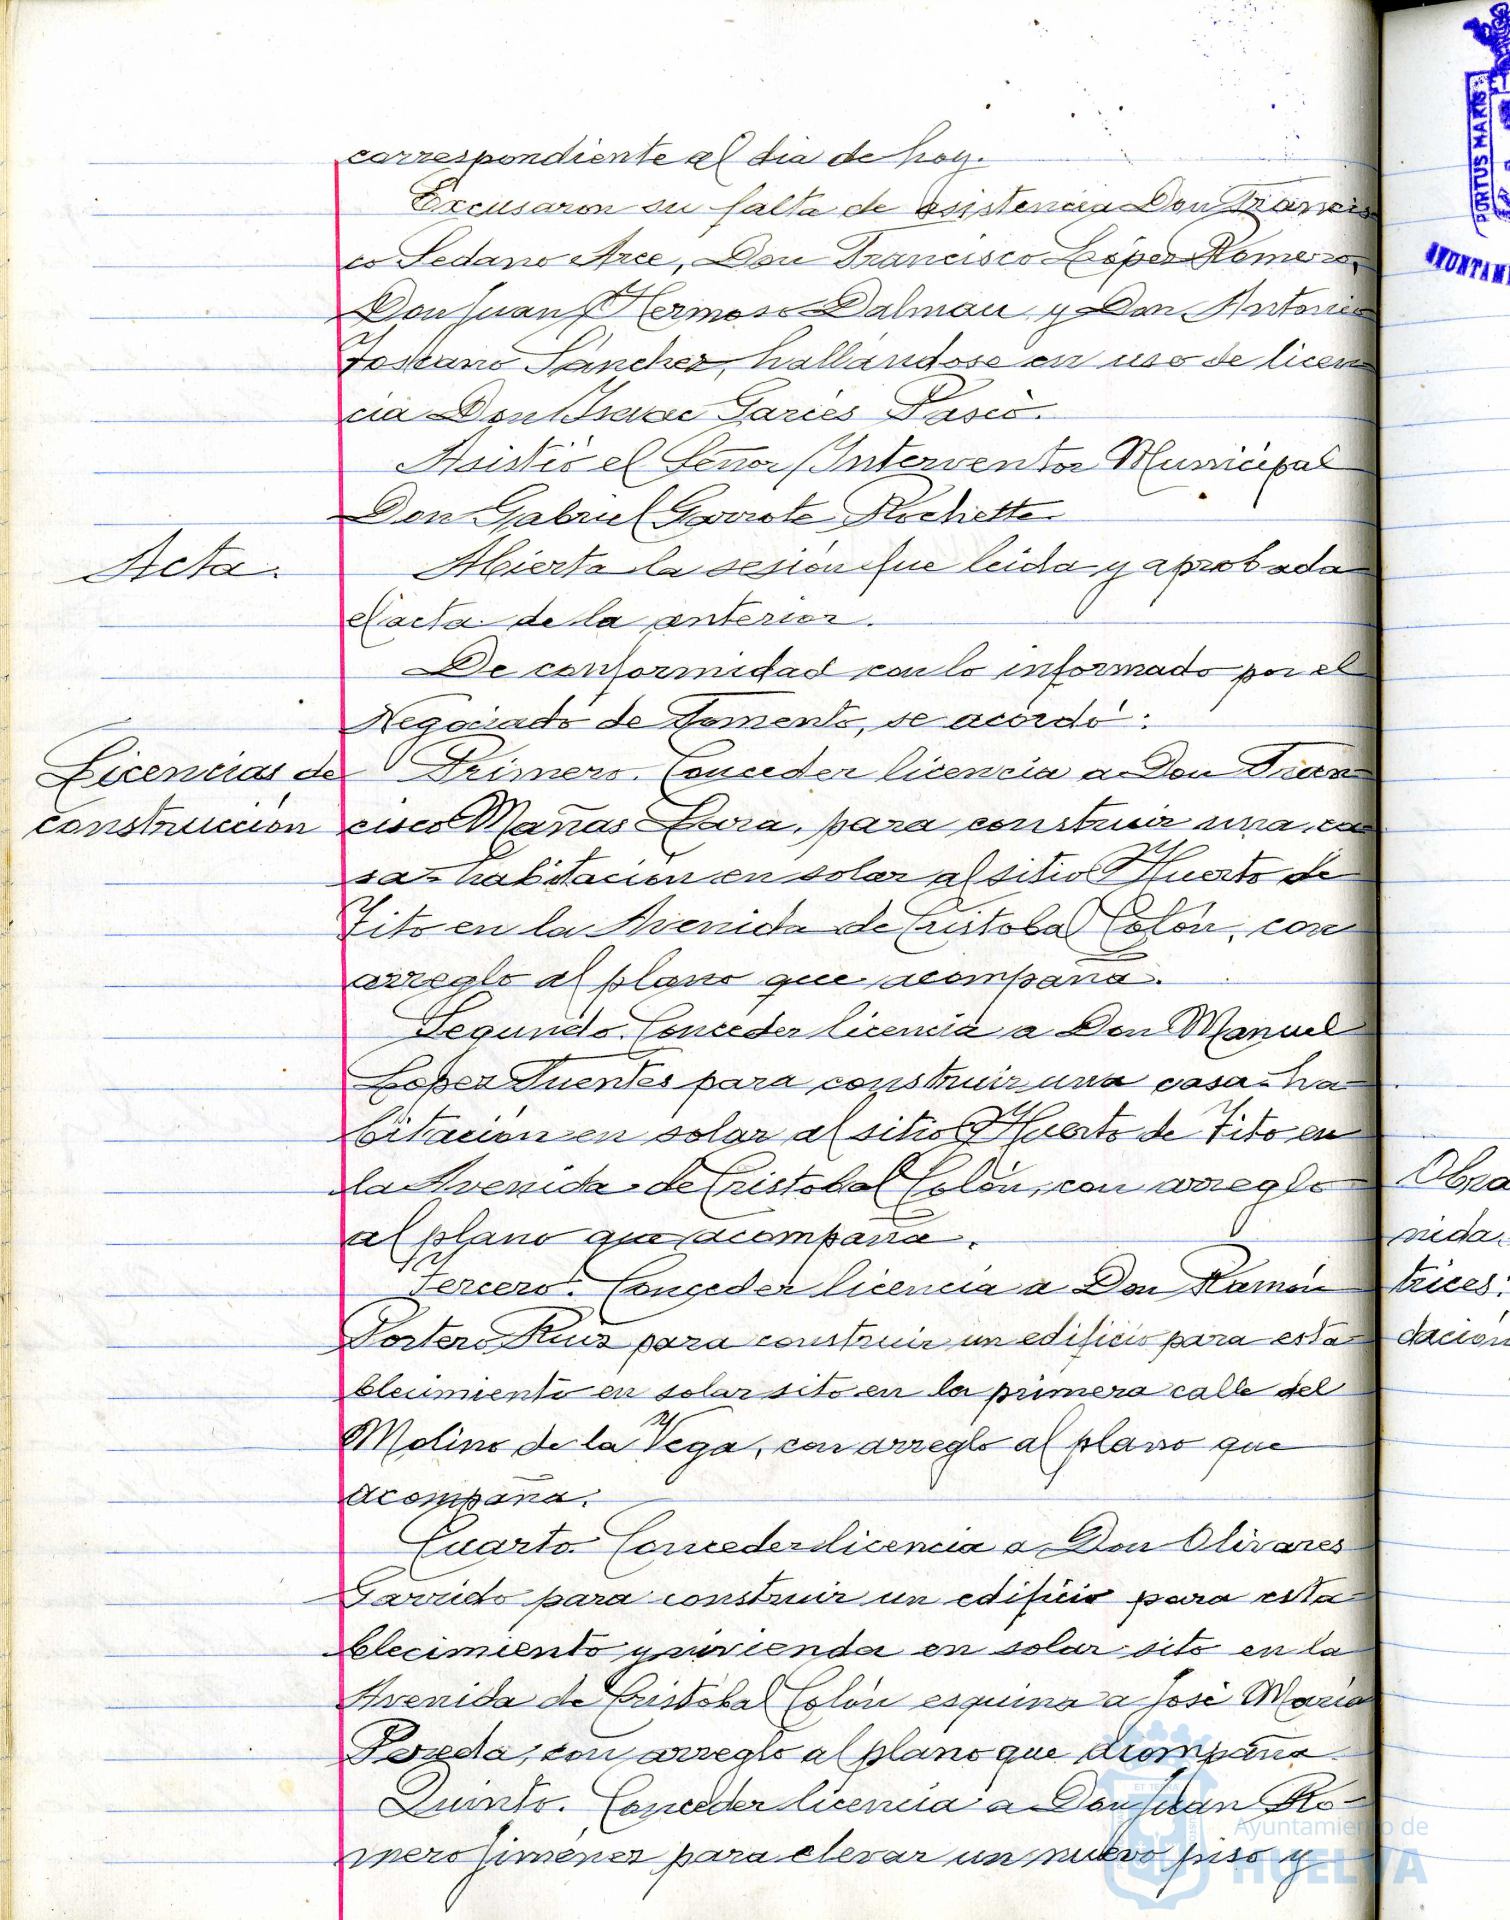 correspondiente al dia de hoy.
Excusaron su falta de asistencia Don Francis
co Sedano Arce, Don Francisco López Romero,
Don Juan Hermoso Dalmau y Don Antonio
Toscano Sánchez, hallándose en uso de licen
cia Don Isaac Garcés Pasció.
Asistió el Señor Interventor Municipal
Don Gabriel Garrote Rochette.
Acta.
Abierta la sesión fue leida y aprobada
el acta de la anterior.
De conformidad con lo informado por el
Negociado de Fomento, se acordó:
Licencias de
construcción
Primero. Conceder licencia a Don Fran
cisco Mañas Lara, para construir una ca
sa-habitación en solar al sitio Huerto de
Tito en la Avenida de Cristobal Colón, con
arreglo al plano que acompaña.
Segundo. Conceder licencia a Don Manuel
López Fuentes para construir una casa-ha
bitación en solar al sitio Huerto de Tito en
la Avenida de Cristobal Colón, con arreglo
al plano que acompaña.
Tercero. Conceder licencia a Don Ramón
Portero Ruiz para construir un edificio para esta-
blecimiento en solar sito en la primera calle del
Molino de la Vega, con arreglo al plano que
acompaña.
Cuarto. Conceder licencia a Don Olivares
Garrido para construir un edificio para esta
blecimiento y vivienda en solar sito en la
Avenida de Cristóbal Colón esquina a José María
Pereda, con arreglo al plano que acompaña.
Quinto. Conceder licencia a Don Juan Ro-
mero Jiménez para elevar un nuevo piso y
PORTUS MARIS
AYUNTAM
Obra
nida
trices:
dación
Ayuntamiento de
HUELVA